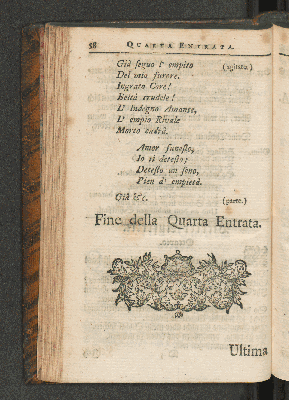 58 QUARTA ENTRATA.
Già seguo l' empito (agitata.)
Del mio furore.
Ingrato Core!
Beltà crudele!
L' Indegno Amante,
L' empio Rivale
Morto cadrà.
Amor funesto,
Io ti detesto;
Detesto un seno,
Pien d' empietà.
Già &c. (parte.)
Fine della Quarta Entrata.
Ultima